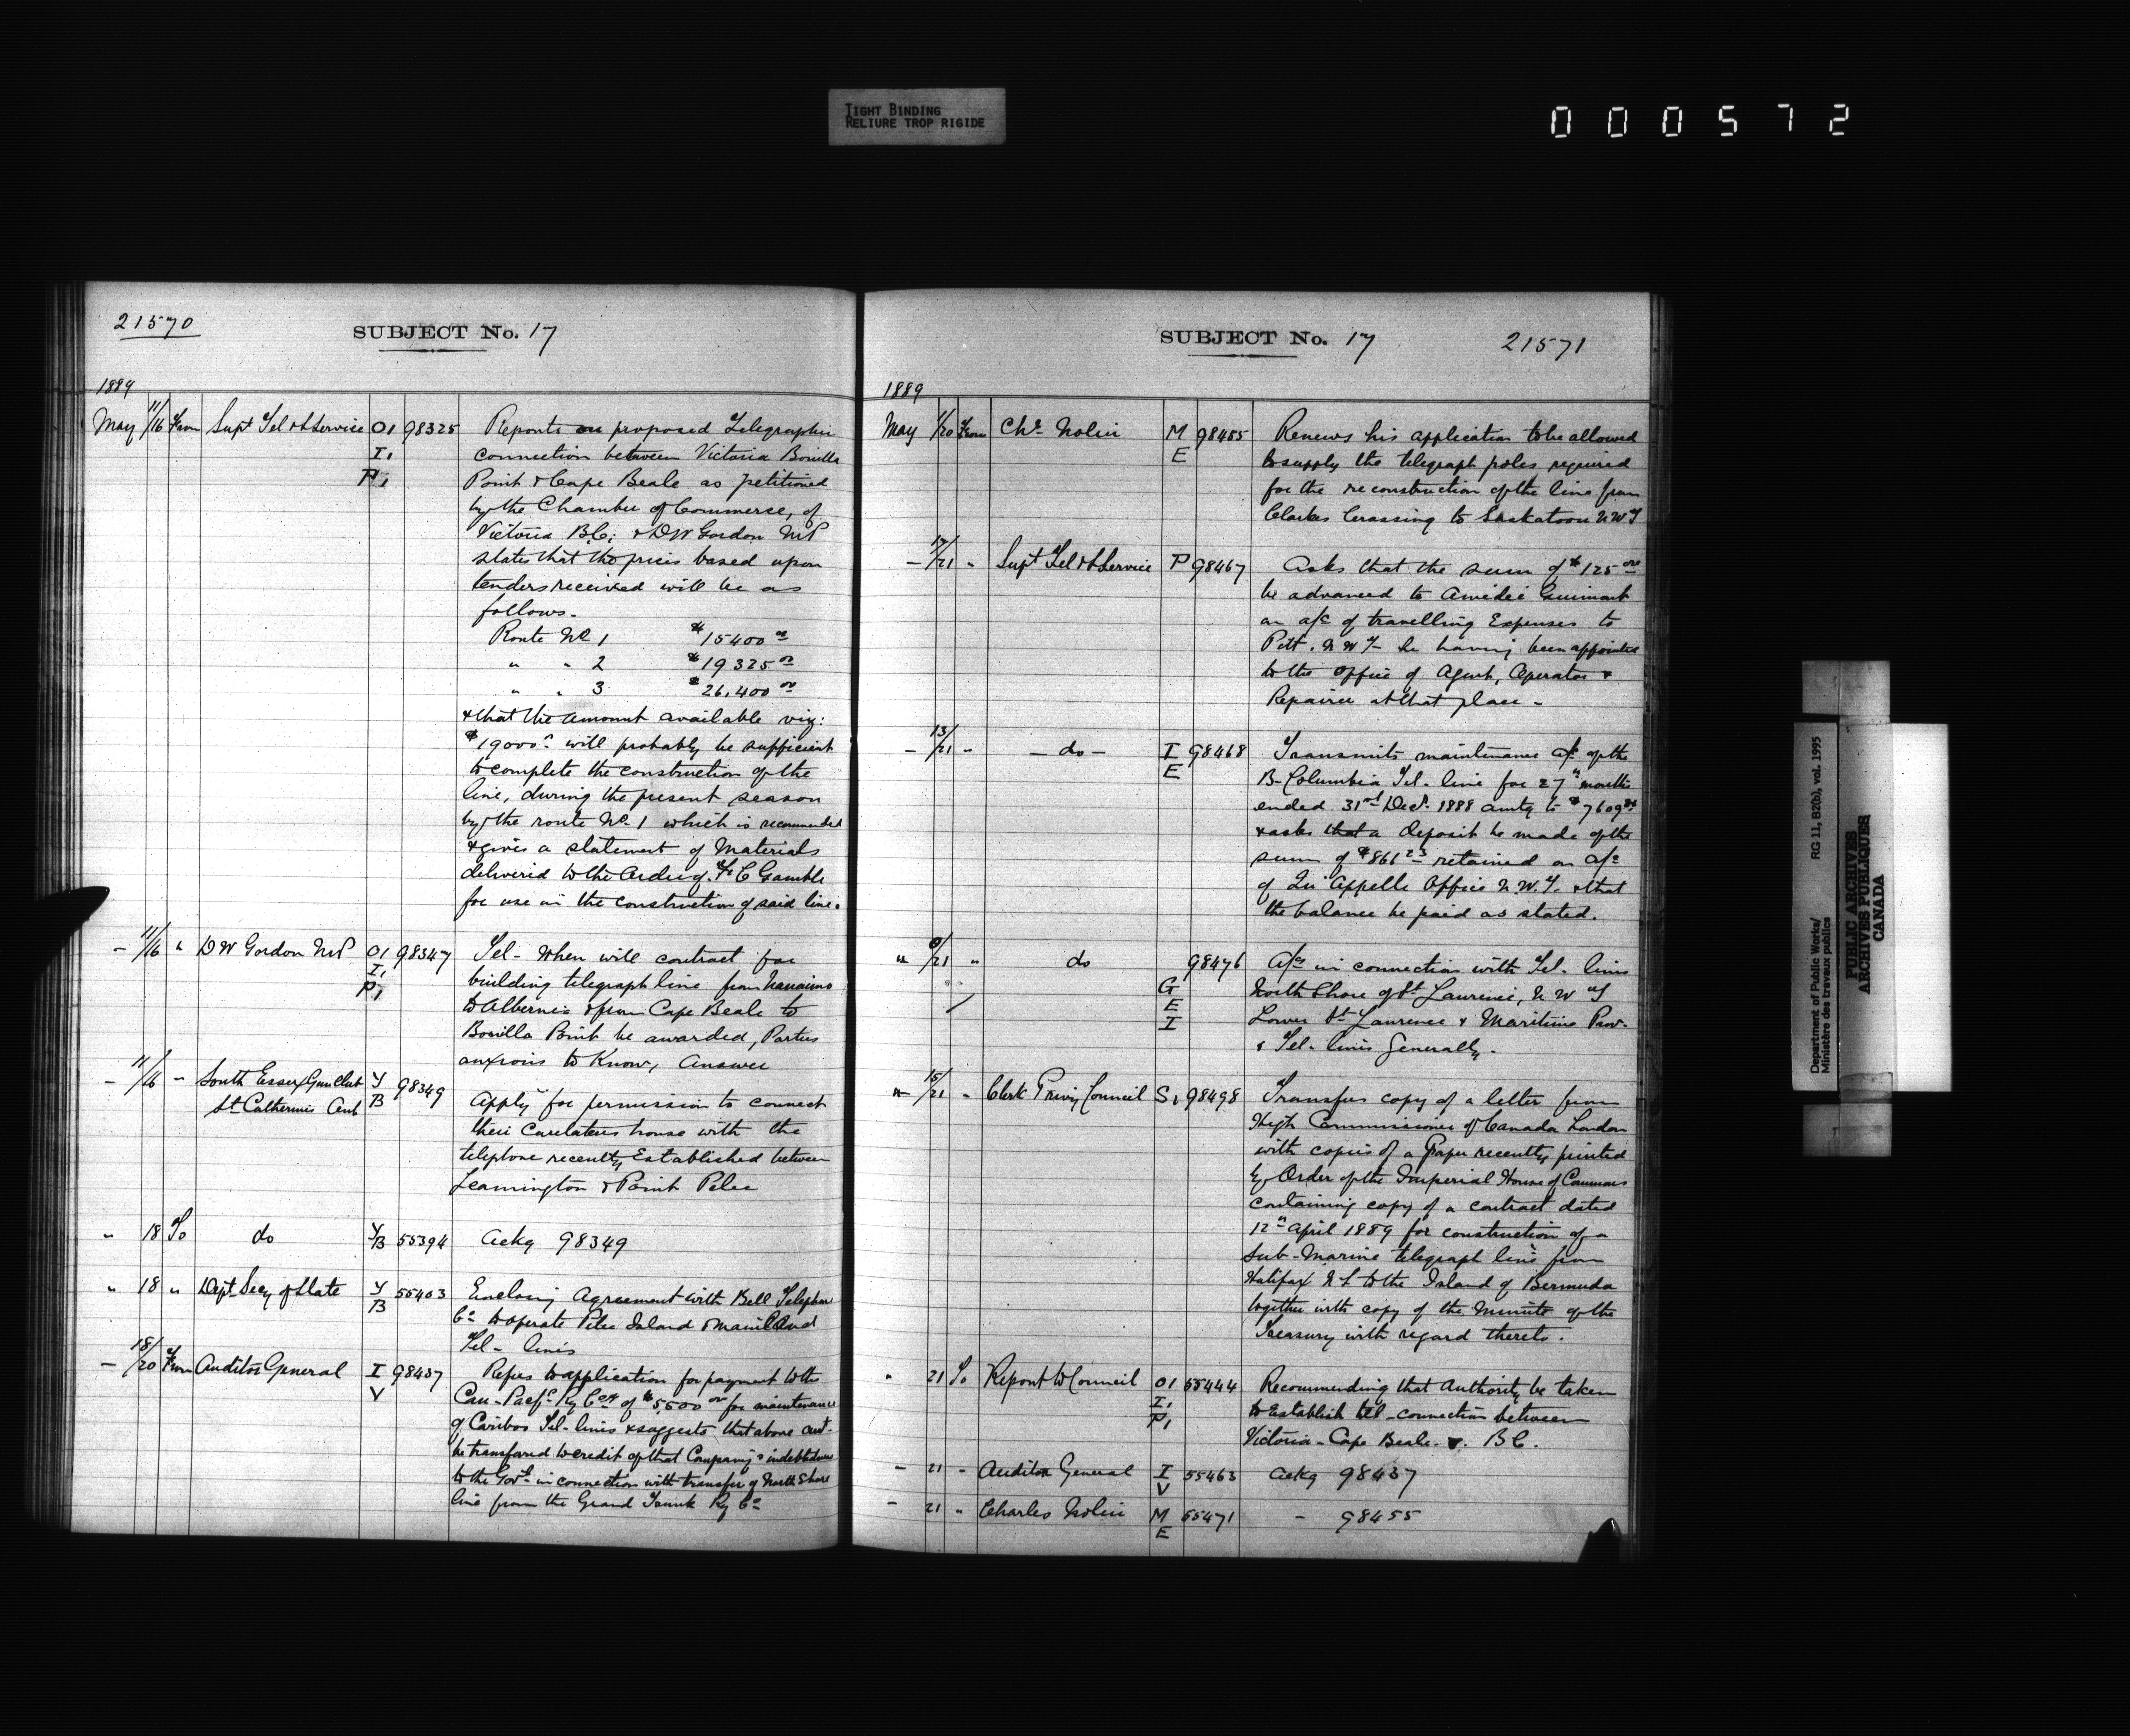 TIGHT BINDING
RELIURE TROP RIGIDE
000572
21570
SUBJECT No. 17
1889
May 11/16 From Supt Tel & S Service O1 98325 Reports on proposed Telegraphic
I, connection between Victoria Bonilla
P, Point & Cape Beale as petitioned
by the Chamber of Commerce, of
Victoria B.C. & D W Gordon M P
states that the prices based upon
tenders received will be as
follows.
Route No 1 $15400 00
" " 2 $19325 00
" " 3 $26,400 00
& that the amount available viz:
$19000 00 will probably be sufficient
to complete the construction of the
line, during the present season
by the route No. 1 which is recommended
& gives a statement of Materials
delivered to the order of F C Gamble
for use in the construction of said line.
- 11/16 " D W Gordon M P O1 98347 Tel- When will contract for
I, building telegraph line from Nanaimo
P, to Albernie & from Cape Beale to
Bonilla Point be awarded, Parties
anxious to Know, Answer
- 11/16 " South Essex Gun Club Y 98349
St. Catherines Ont B Apply for permission to connect
their Caretakers house with the
telephone recently Established between
Leamington & Point Pelee
" 18 To do Y/B 55394 Ackg 98349
" 18 " Dept Secy of State Y 55403 Enclosing Agreement with Bell Telephone
B Co to operate Pelee Island & Mainland
Tel- lines
- 18/20 From Auditor General I 98437 Refers to application for payment to the
V Can- Pacfc Ry Coy of $5,500 00 for maintenance
of Cariboo Tel- lines & suggests that above amt-
be transfered to credit of that Company's indebtedness
to the Govt in connection with transfer of North Shore
line from the Grand Trunk Ry Co
SUBJECT No. 17
21571
1889
May /20 From Chs Nolin M 98455 Renews his application to be allowed
E to supply the telegraph poles required
for the reconstruction of the line from
Clarkes Crossing to Saskatoon N W T
- 17/21 " Supt Tel & S Service P 98467 Asks that the sum of $125 00
be advanced to Amédée Guimont
on a/c of travelling Expenses to
Pitt. N W T- he having been appointed
to the Office of Agent, Operator &
Repairer at that place -
- 13/21 " - do - I 98468 Transmits maintenance a/c of the
E B- Columbia Tel- line for 27 months
ended 31st Decr. 1888 amtg to $7609
& asks that a deposit be made of the
sum of $866 23 retained on a/c
of Qu'Appelle Office N.W.T. & that
the balance be paid as stated.
" /21 " do 98476 A/cs in connection with Tel- lines
G North Shore of St Laurence, N W T
E Lower St Laurence & Maritime Prov-
I & Tel- lines Generally -
" 15/21 " Clerk Privy Council S, 98498 Transfers copy of a letter from
High Commissioner of Canada London
with copies of a Paper recently printed
by Order of the Imperial House of Commons
containing copy of a contract dated
12th April 1889 for construction of a
Sub-Marine telegraph line from
Halifax N S to the Island of Bermuda
together with copy of the Minute of the
Treasury with regard thereto.
" 21 To Report to Council O1 55444 Recommending that Authority be taken
I, to Establish tel- connection between
P, Victoria - Cape Beale - B C.
- 21 " Auditor General I 55463 Ackg 98437
V
- 21 " Charles Nolin M 55471 - 98455
E
Department of Public Works/ RG 11, B2(b), vol. 1995
Ministère des travaux publics
PUBLIC ARCHIVES
ARCHIVES PUBLIQUES
CANADA